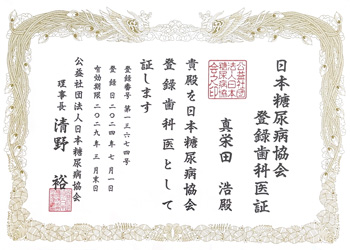 日本糖尿病協会
登録歯科医証
真栄田 浩殿
貴殿を日本糖尿病協会
登録歯科医として
証します
登録番号 第一三六七四号
登録日 二〇二四年 七月一日
有効期限 二〇二九年 三月末日
公益社団法人日本糖尿病協会
理事長 清野 裕